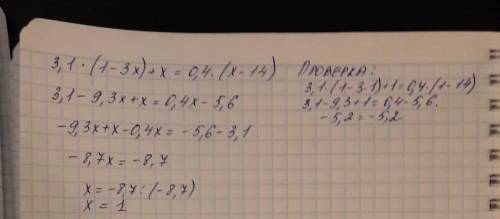 3,1·(1-3x)+x=0,4·(x-14)
3,1-9,3x+x=0,4x-5,6
-9,3x+x-0,4x=-5,6-3,1
-8,7x=-8,7
x=-8,7:(-8,7)
x=1
Проверка:
3,1·(1-3·1)+1=0,4·(1-14)
3,1-9,3+1=0,4-5,6.
-5,2=-5,2